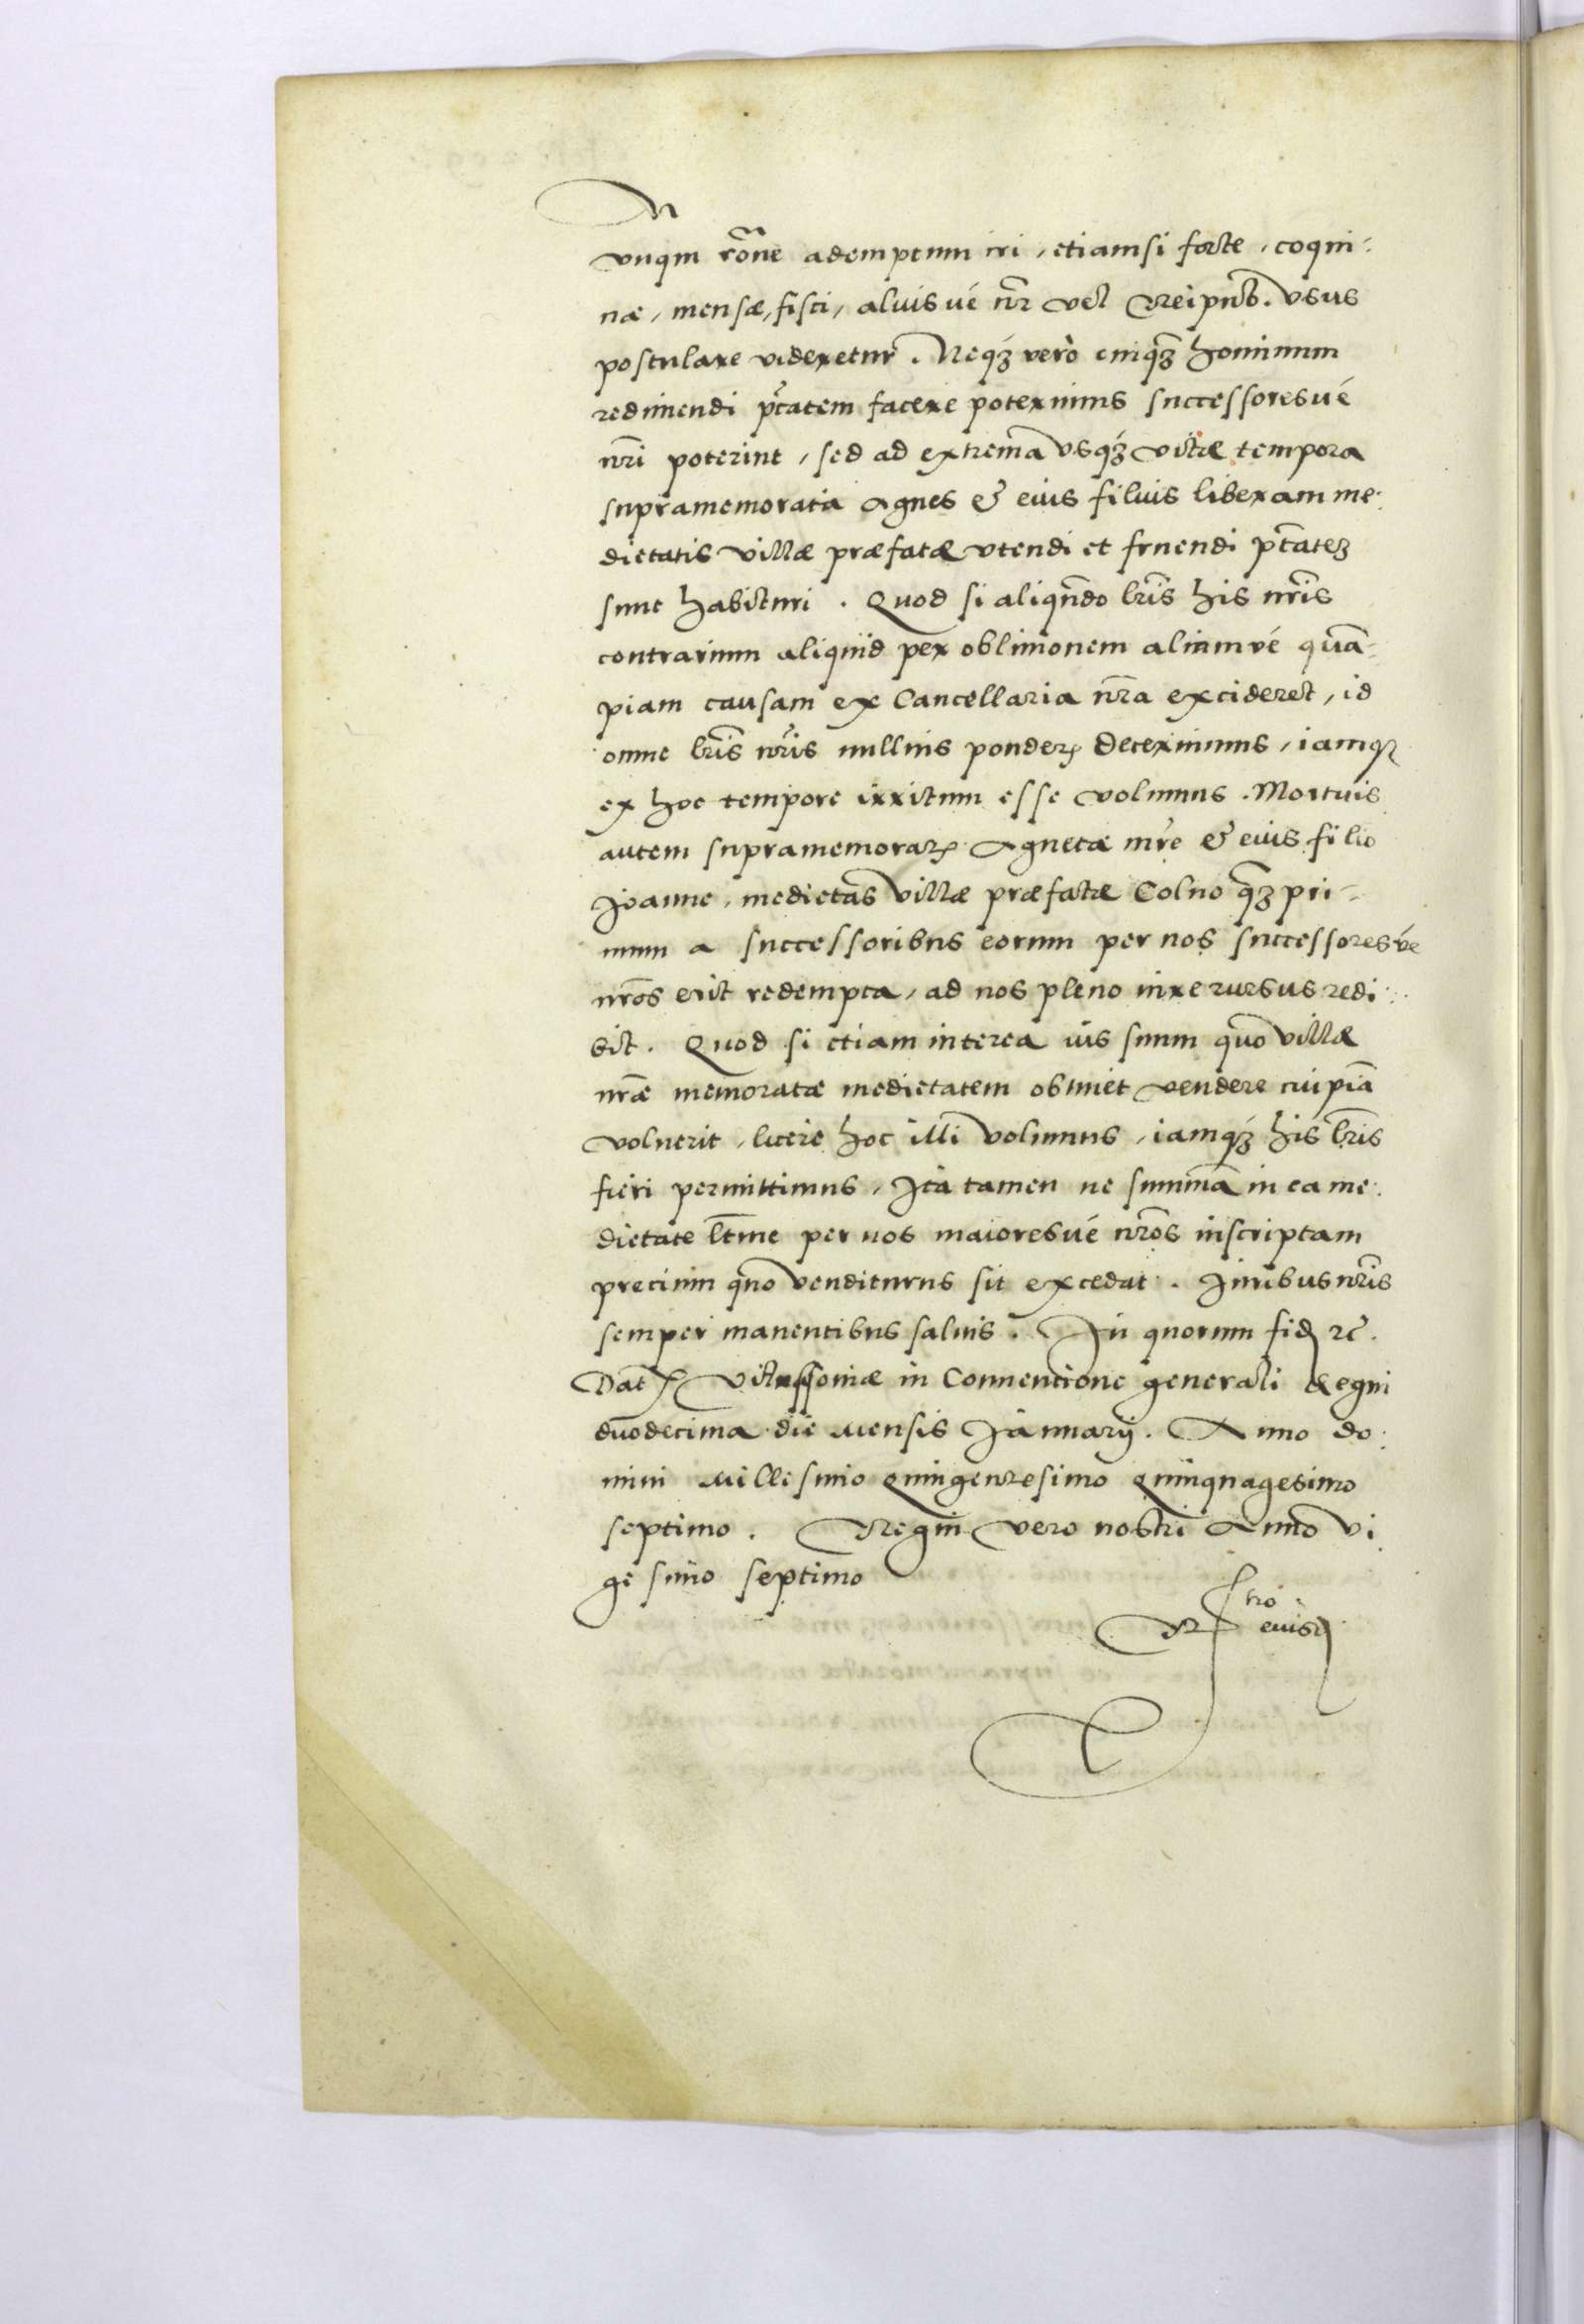 vnqm rõne ademptum iri, etiamsi forte, coqui-
næ, mensæ, fisci, aliusue nr̃ vel Reipub. vsus
postulare videretur. Neq3 vero cuiq3 hominum
redimendi ptatem facere poterimus successoresué
nri poterint, sed ad extrema vsq3 vitæ tempora
supramemorata Agnes & eius filius liberam me-
dietatis villæ præfatæ vtendi et fruendi ptate3
sunt habituri. Quod si aliqñdo lris his nris
contrarium aliquid per obliuionem aliamvé quã-
piam causam ex Cancellaria nra excideret, id
omne lris nris nullius ponderis decernimus, iamq3
ex hoc tempore irritum esse volumus. Mortuis
autem supramemorat Agneta mre & eius filio
Joanne, medietas villæ præfatæ Colno q3 pri-
mum a successoribus eorum per nos successoresvé
nros erit redempta, ad nos pleno iure rursus redi-
bit. Quod si etiam interea ius suum quo villæ
nræ memoratæ medietatem obtinet vendere cuipiã
voluerit, licere hoc illi volumus, iamq3 his lris
fieri permittimus, Ita tamen ne summã in ea me-
dietate ltme per nos maioresué nros inscriptam
precium quo venditurus sit excedat. Iuribus nris
semper manentibus saluis. In quorum fid rc̃.
Dat Varssouiæ in Conuentione generali Regni
duodecima die mensis Januarij. Anno do-
mini Millesimo quingentesimo quinquagesimo
septimo. Regni vero nostri Anno vi
gesimo septimo